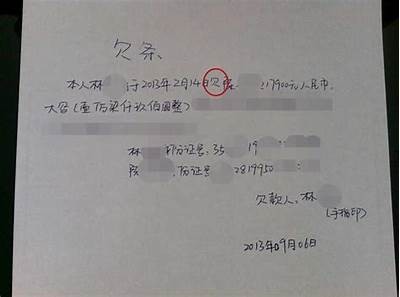 欠条
本人林 于2013年2月14日欠 17900元人民币
大写(壹万柒仟玖佰圆整)
林 身份证号:35 19
身份证号 2819950
欠款人:林
(手指印)
2013年09月06日